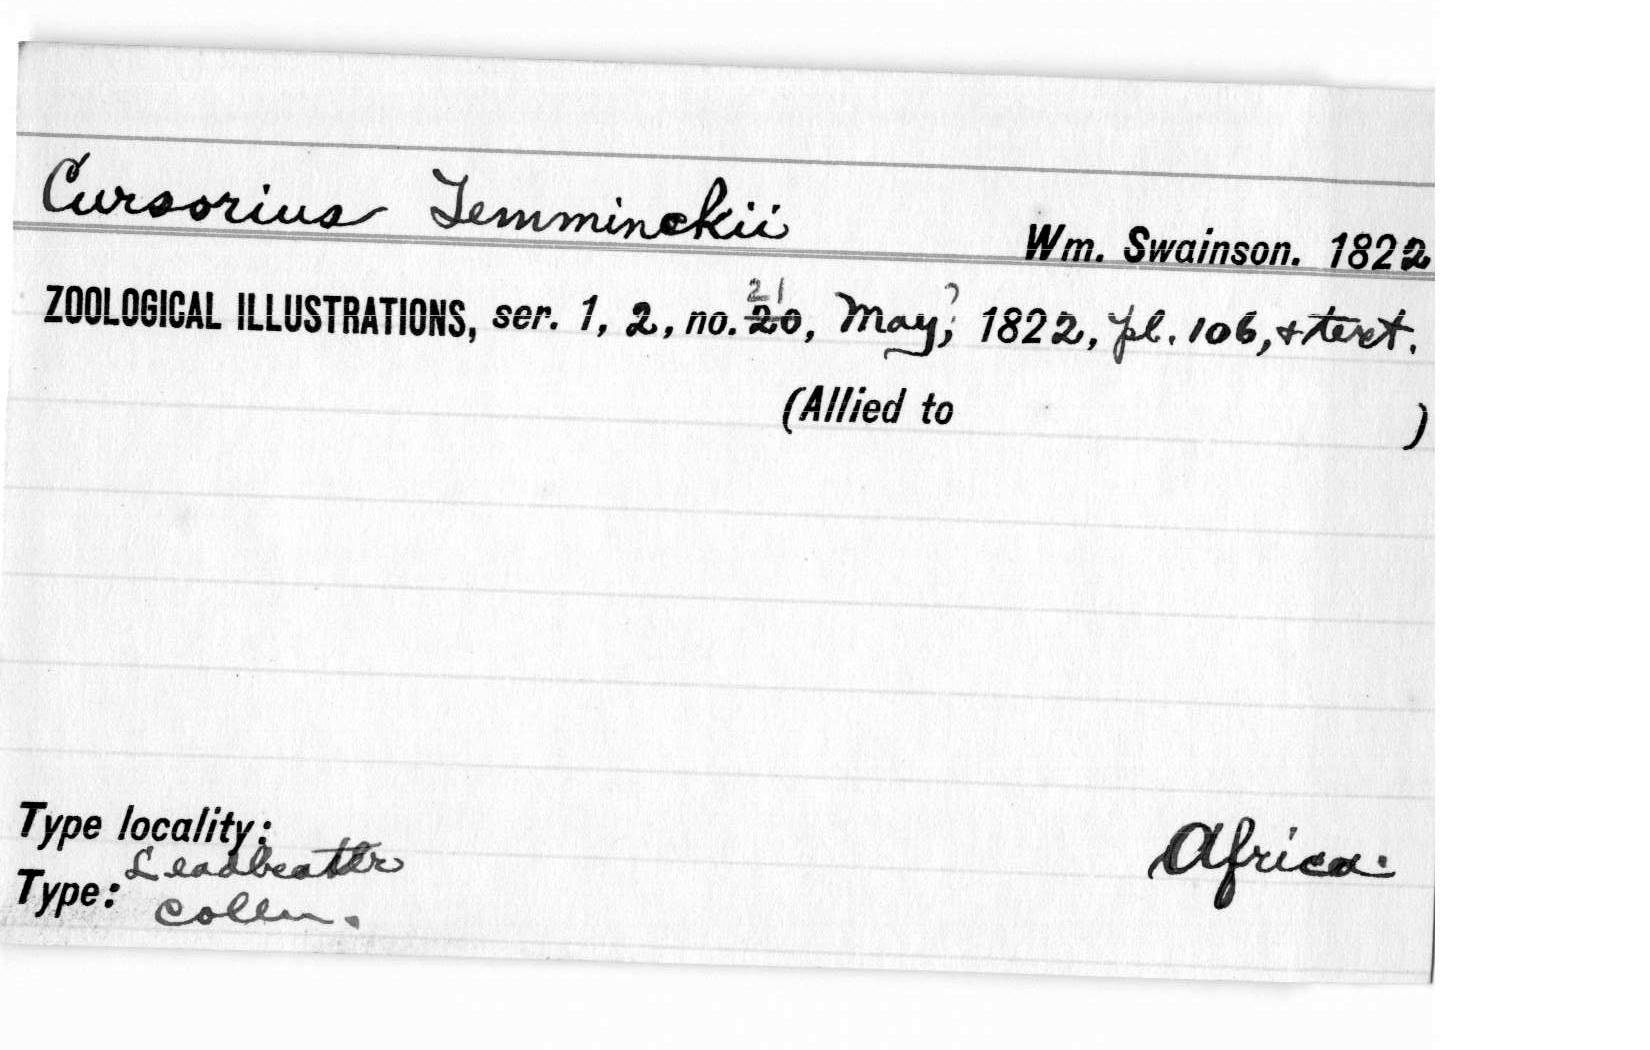 Cursorius Temminckii
Wm. Swainson. 1822
21
ZOOLOGICAL ILLUSTRATIONS, ser. 1, 2, no. 20, May?, 1822, pl. 106, & text.
(Allied to )
Type locality: Africa.
Type: Leadbeater
colln.